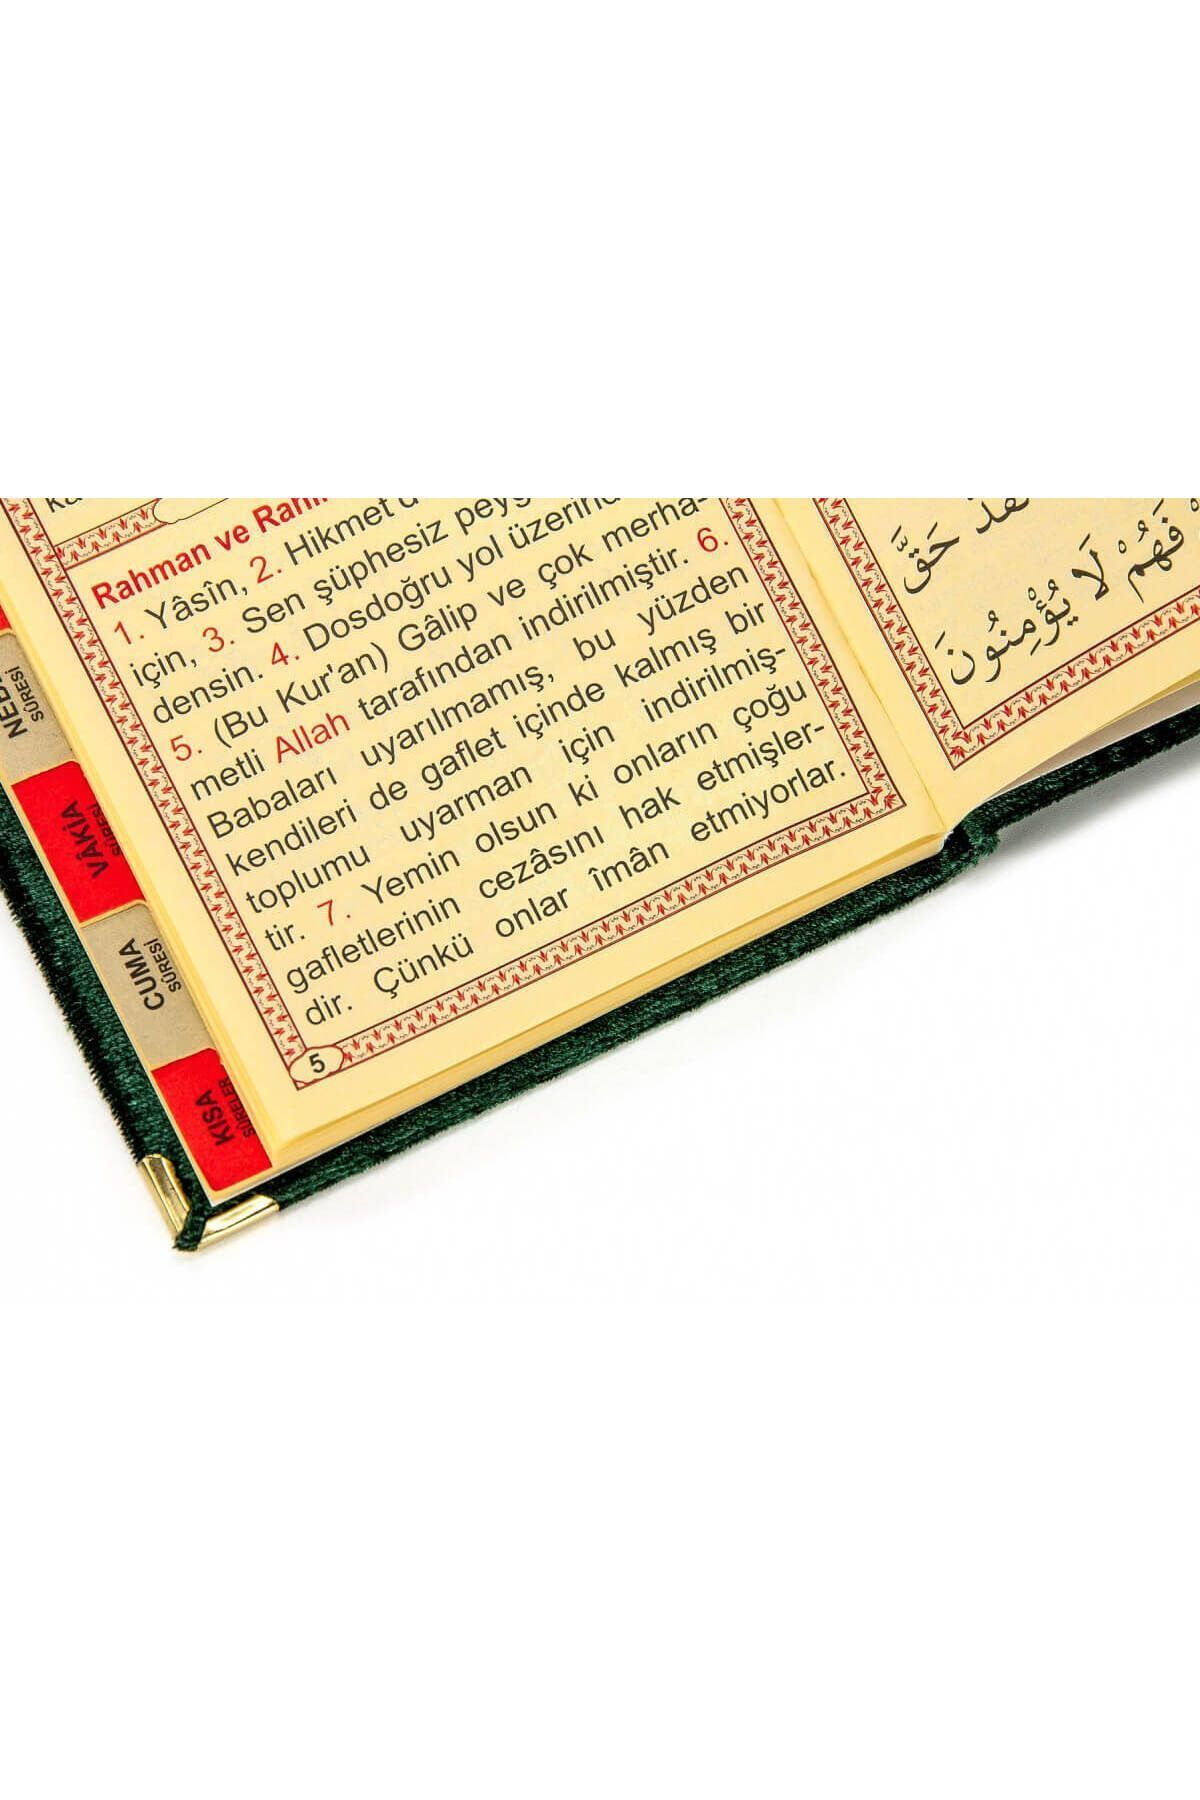 Rahman ve
1. Yâsîn, 2. Hikmet
için, 3. Sen şüphesiz
densin. 4. Dosdoğru yol
5. (Bu Kur'an) Gâlip ve çok merha-
metli Allah tarafından indirilmiştir. 6.
Babaları uyarılmamış, bu yüzden
kendileri de gaflet içinde kalmış bir
toplumu uyarman için indirilmiş-
tir. 7. Yemin olsun ki onların çoğu
gafletlerinin cezâsını hak etmişler-
dir. Çünkü onlar îmân etmiyorlar.
5
SÛRESİ
VÂKİA
SÛRESİ
CUMA
SÛRESİ
KISA
SÛRELER
حَقَّ
فَهُمْ لَا يُؤْمِنُونَ